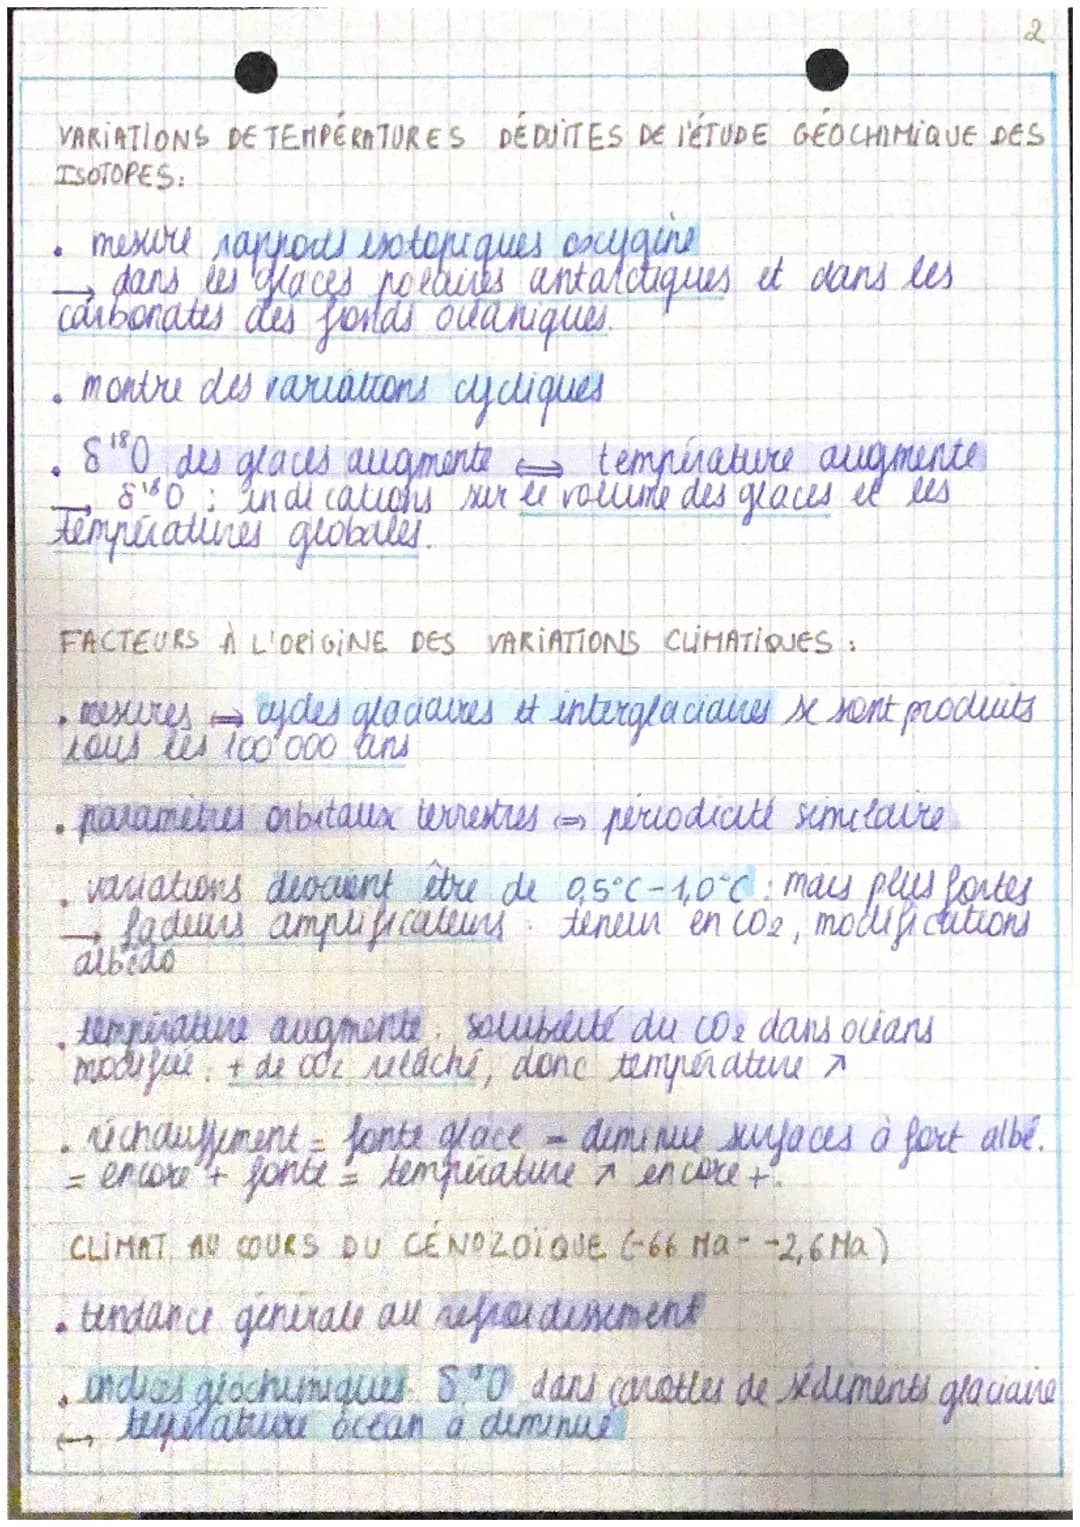 2
VARIATIONS DE TEMPÉRATURES DÉDUITES DE l'ÉTUDE GÉOCHIMIQUE DES
ISOTOPES:
• mesure rapports isotopiques oxygène
→ dans les glaces polaires antarctiques et dans les
carbonates des fonds océaniques.
• montre des variations cycliques
• δ¹⁸O des glaces augmente ⇔ température augmente
→ δ¹⁸O : indications sur le volume des glaces et les
températures globales.
FACTEURS À L'ORIGINE DES VARIATIONS CLIMATIQUES :
• mesures ⇒ cycles glaciaires et interglaciaires se sont produits
tous les 100 000 ans
• paramètres orbitaux terrestres ⇒ périodicité similaire
• variations devaient être de 0,5°C-1,0°C : mais plus fortes
→ facteurs amplificateurs : teneur en CO₂, modifications
albédo
• température augmente : solubilité du CO₂ dans océans
modifiée : + de CO₂ relâché, donc température ↗
• réchauffement = fonte glace = diminue surfaces à fort albé.
= encore + fonte = température ↗ encore +.
CLIMAT AU COURS DU CÉNOZOÏQUE (-66 Ma - -2,6 Ma)
• tendance générale au refroidissement
• indices géochimiques : δ¹⁸O dans carottes de sédiments glaciaire
↔ température océan a diminué